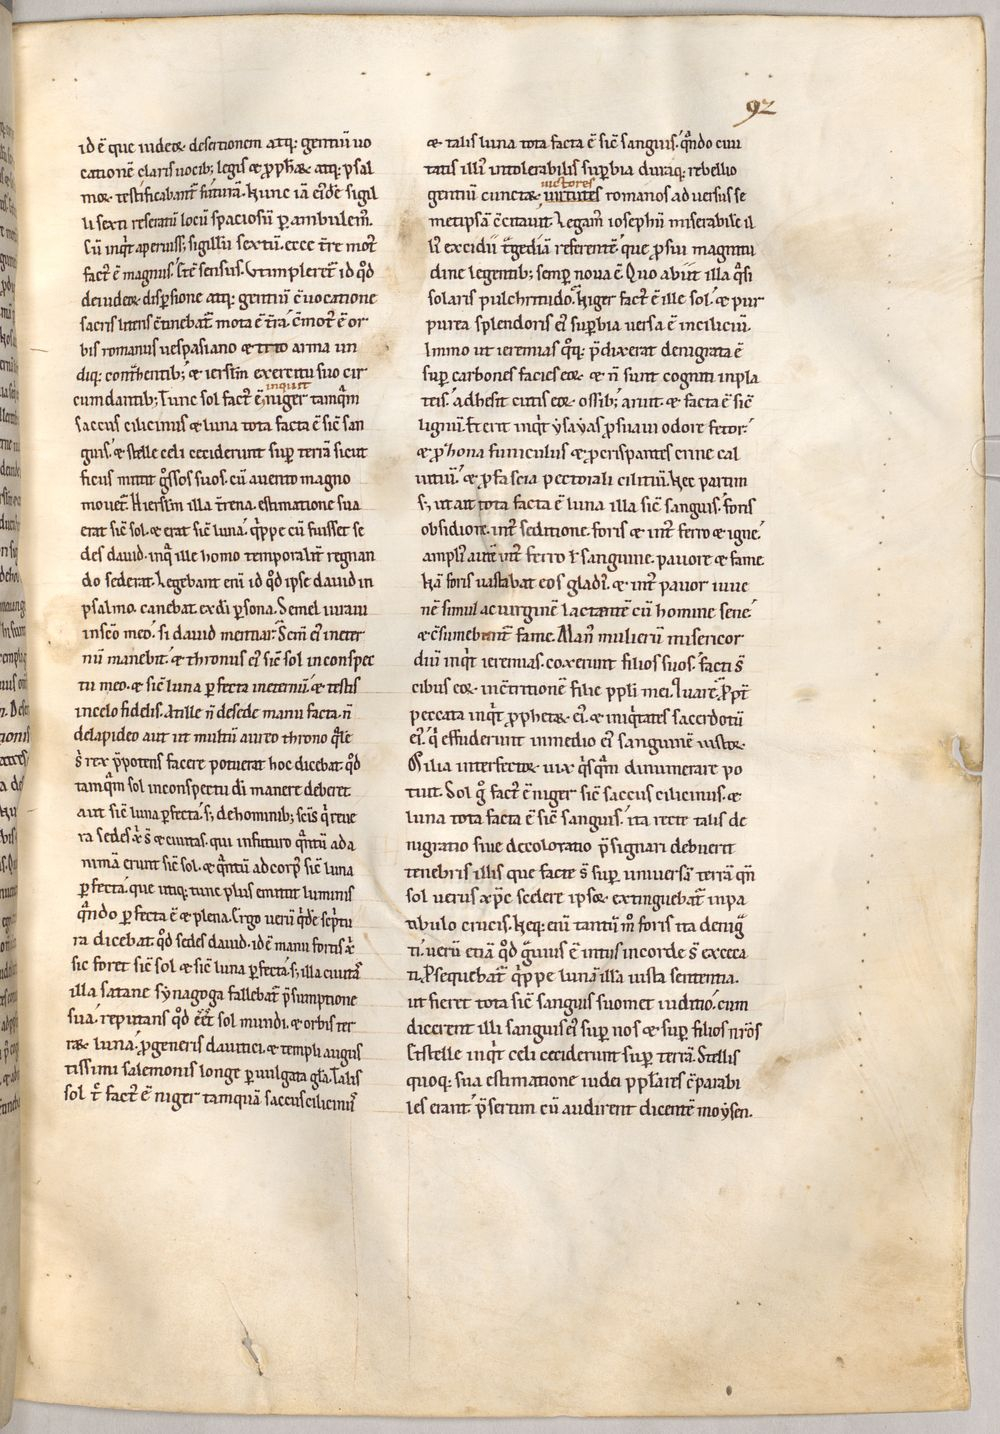 92
id ē que iudeoꝝ desertionem atq; gentiū uo
cationē claris uocib; legis & ꝓph&aꝝ atq; psal
moꝝ testificabant᷑ futurā. Hunc iā ei᷒dē sigil
li sexti reseratū locū spaciosū ꝑambulem᷒.
Cū inqͥt aperuiss& sigillū sextū. ecce t̄re mot᷒
fact᷒ ē magnus. Est sensus. Vt impleret᷑ id qd̄
de iudeoꝝ dispersione atq; gentiū ēuocatione
sacris litteris ɔtinebat᷑ mota ē t̄ra. ɔmot᷒ ē or
bis romanus uespasiano & tito arma un
diq; contͣhentib; & ierlm̄ exercitu suo cir
cumdantib; Tunc sol fact᷒ ē inquit niger tamqͣm
saccus cilicinus & luna tota facta ē sic̄ san
guis. & stelle celi ceciderunt sup terrā sicut
ficus mittit g̊ssos suos. cū a uento magno
mouet᷑. Hierlm̄ illa t̄rena. estimatione sua
erat sic̄ sol. & erat sic̄ luna. q̄ppe cū fuisset se
des dauid. inqͣ ille homo temporalit᷑ regnan
do sederat. Legebant eni id qd̄ ipse dauid in
psalmo canebat ex dī ꝑsona. Semel iuraui
in sc̄o meo. si dauid mentiar. Sem̄ ei᷒ in eter
nū manebit. & thronus ei᷒ sic̄ sol in conspec
tu meo. & sic̄ luna ꝑfecta in eternū. & testis
in celo fidelis. At ille n̄ de sede manu facta. n̄
de lapideo aut ut multū aureo throno qͣle
s̄ rex p̄potens facere potuerat hoc dicebat. qd̄
tamqͣm sol in conspectu dī manere deberet
aut sic̄ luna ꝑfecta. s; de hominib; sc̄is qͥ reue
ra sedes xp̄i s̄ & ciuitas. qui in futuro qͣntū ad a
nimā erunt sic̄ sol. & qͣntū ad corp᷒ sic̄ luna
ꝑfecta. que utiq; tunc plus emittit luminis
qͣndo ꝑfecta ē & plena. Ergo uerū qͥdē scptu
ra dicebat. qd̄ sedes dauid. id ē manu fortis xp̄i
sic foret sic̄ sol & sic̄ luna ꝑfecta. s; illa ciuitas
illa satane synagoga fallebat᷑ p̄sumptione
sua. reputans qd̄ eēt sol mundi. & orbis ter
raꝝ luna. ꝓ generis dauitici. & templi augus
tissimi salemonis longe ꝑuulgata gl̄a. Talis
sol g̊ fact᷒ ē niger tamquā saccus cilicinus
& talis luna tota facta ē sic̄ sanguis. qͣndo ciui
tatis illi᷒ intolerabilis suꝑbia duraq; rebellio
gentiū cunctaꝝ uirtutes uictores romanos aduersus se
metipsā ɔcitauit. Legam᷒ iosephū miserabile il
li᷒ excidii t̄gediā referentē. que ꝓ sui magnitu
dine legentib; semꝑ noua ē. Quo abiit illa qͣsi
solaris pulchritudo. Niger fact᷒ ē ille sol. & pur
purea splendoris ei᷒ suꝑbia uersa ē in ciliciū.
Immo ut ieremias qq; p̄dixerat denigrata ē
suꝑ carbones facies eoꝝ & n̄ sunt cogniti in pla
teis. adhesit cutis eoꝝ ossib; aruit. & facta ē sic̄
lignū. Et erit inqͥt ysayas ꝓ suaui odore fetor.
& ꝓ zona funiculus & ꝓ crispantes crine cal
uitiū. & ꝓ fascia pectorali ciliciū. Nec parum
s; ut ait tota facta ē luna illa sic̄ sanguis. foris
obsidione. int᷒ seditione. foris & int᷒ ferro & igne.
ampli᷒ autē int᷒ ferro ł sanguine. pauore & fame.
Nā foris uastabat eos gladi᷒. & int᷒ pauor iuue
nē simul ac uirginē lactantē cū homine sene.
& ɔsumebant᷑ fame. Man᷒ mulierū misericor
diū inqͥt ieremias. coxerunt filios suos. facti s̄
cibus eoꝝ. in ɔtritione filie ppl̄i mei. Quare. Ꝓpt᷑
peccata inqͥt ꝓph&aꝝ ei᷒. & iniqͥtates sacerdotū
ei᷒. qͥ effuderunt in medio ei᷒ sanguinē iustoꝝ.
Milia interfectoꝝ uix qͥsqͣm dinumerare po
tuit. Sol g̊ fact᷒ ē niger sic̄ saccus cilicinus. &
luna tota facta ē sic̄ sanguis. ita recte talis de
nigratio siue decoloratio p̄signari debuerit
tenebris illis que facte s̄ suꝑ uniuersā terrā qn̄
sol uerus xp̄c scelere ipsoꝝ extinguebat᷑ in pa
tibulo crucis. Neq; eni tantū m̊ foris ita denigͣ
ti. uerū etiā qd̄ gͣuius ē intus in corde s̄ exceca
ti. Ꝓsequebat᷑ qͥppe lunā illā iusta sententia.
ut fieret tota sic̄ sanguis suomet iuditio. cum
dicerent illi sanguis ei᷒ suꝑ nos & suꝑ filios nr̄os
Et stelle inqͥt celi ceciderunt suꝑ terrā. Stellis
quoq; sua estimatione iudei ppl̄aires ɔparabi
les erant. p̄sertim cū audirent dicentē moysen.